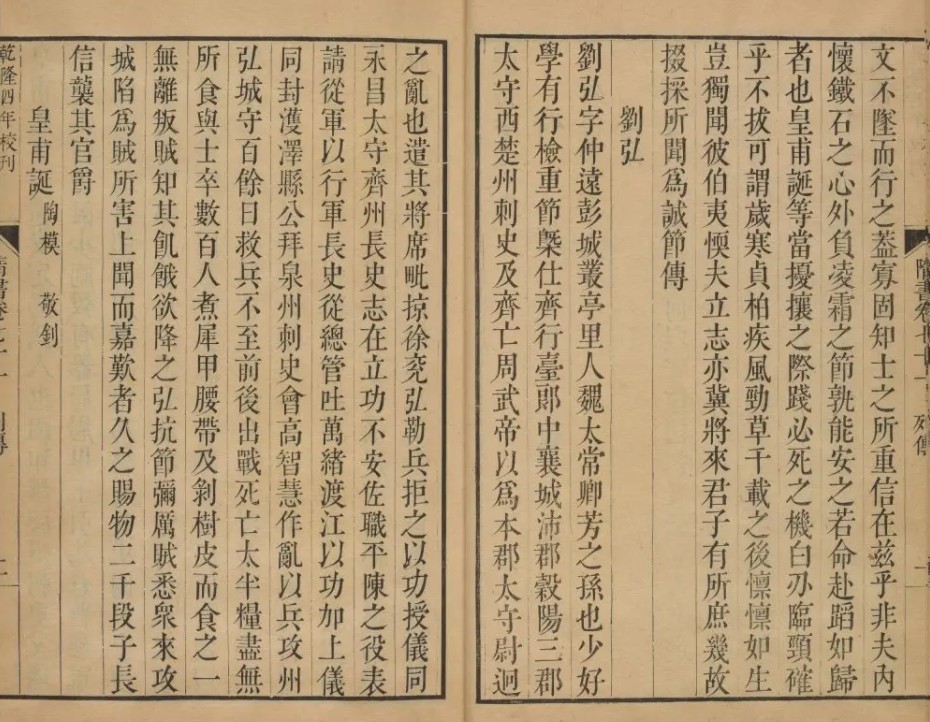 文不墜而行之蓋寡固知士之所重信在茲乎非夫內
懷鐵石之心外負凌霜之節孰能安之若命赴蹈如歸
者也皇甫誕等當擾攘之際踐必死之機白刃臨頸確
乎不拔可謂歲寒貞柏疾風勁草千載之後懍懍如生
豈獨聞彼伯夷懦夫立志亦冀將來君子有所庶幾故
掇採所聞為誠節傳
劉弘
劉弘字仲遠彭城叢亭里人魏太常卿芳之孫也少好
學有行檢重節槩仕齊行臺郎中襄城沛郡穀陽三郡
太守西楚州刺史及齊亡周武帝以為本郡太守尉迥
之亂也遣其將席毗掠徐兗弘勒兵拒之以功授儀同
永昌太守齊州長史志在立功不安佐職平陳之役表
請從軍以行軍長史從總管吐萬緒渡江以功加上儀
同封濩澤縣公拜泉州刺史會高智慧作亂以兵攻州
弘城守百餘日救兵不至前後出戰死亡太半糧盡無
所食與士卒數百人煮犀甲腰帶及剝樹皮而食之一
無離叛賊知其飢餓欲降之弘抗節彌厲賊悉衆來攻
城陷為賊所害上聞而嘉歎者久之賜物二千段子長
信襲其官爵
皇甫誕 陶模 敬釗
乾隆四年校刊
隋書卷七十一 列傳